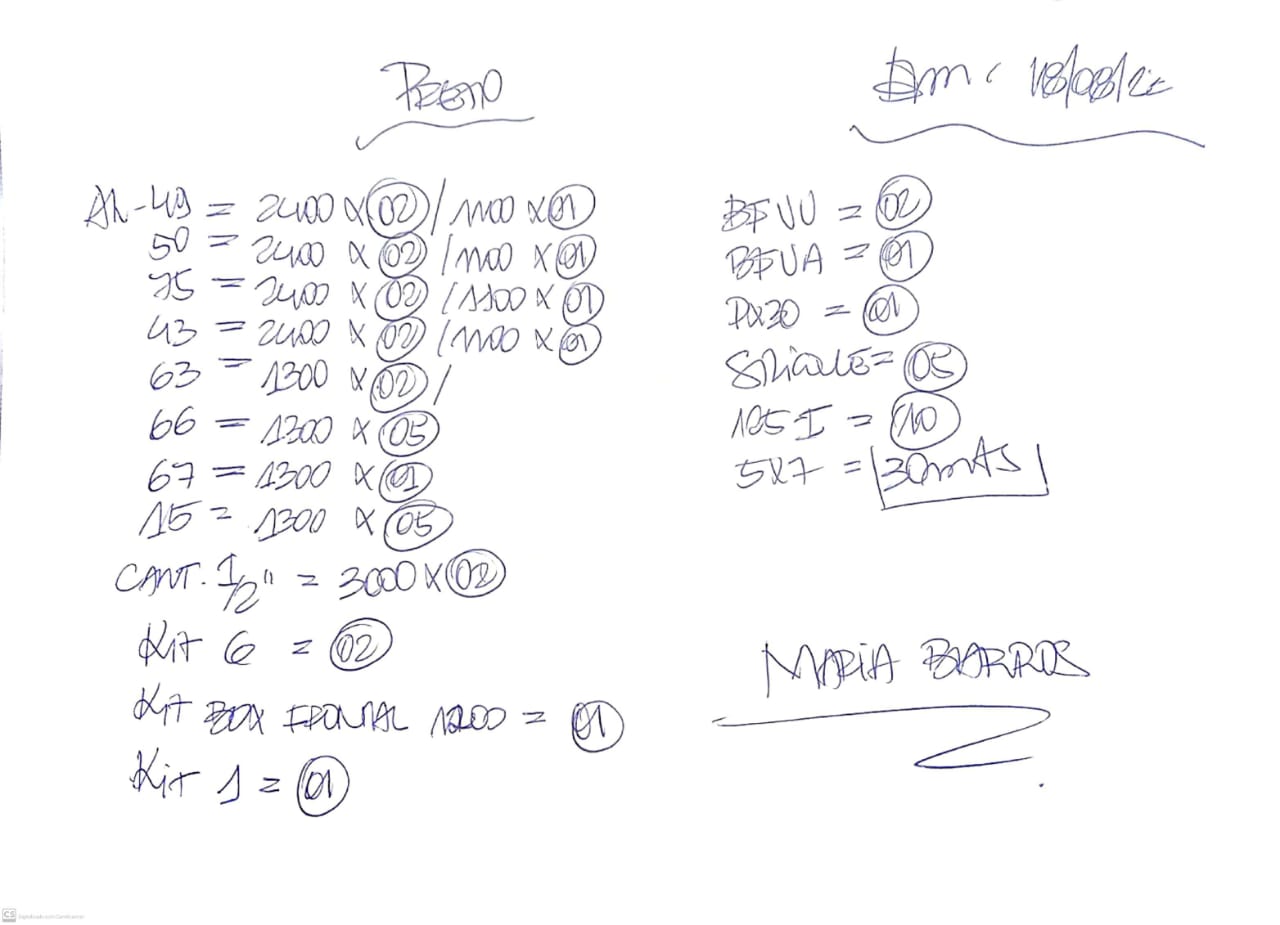 PRETO
Em: 18/08/22
AL-49 = 2400 x 02 / 1100 x 01
50 = 2400 x 02 / 1100 x 01
75 = 2400 x 02 / 1100 x 01
43 = 2400 x 02 / 1100 x 01
63 = 1300 x 02 /
66 = 1300 x 05
67 = 1300 x 01
15 = 1300 x 05
CANT. 1/2" = 3000 x 02
Kit 6 = 02
Kit BOX FRONTAL 1200 = 01
Kit 1 = 01
BFVU = 02
BFVA = 01
PX30 = 01
SILICONE = 05
125 I = 10
5x7 = 30mts
MARIA BARROS
CS Digitalizado com CamScanner